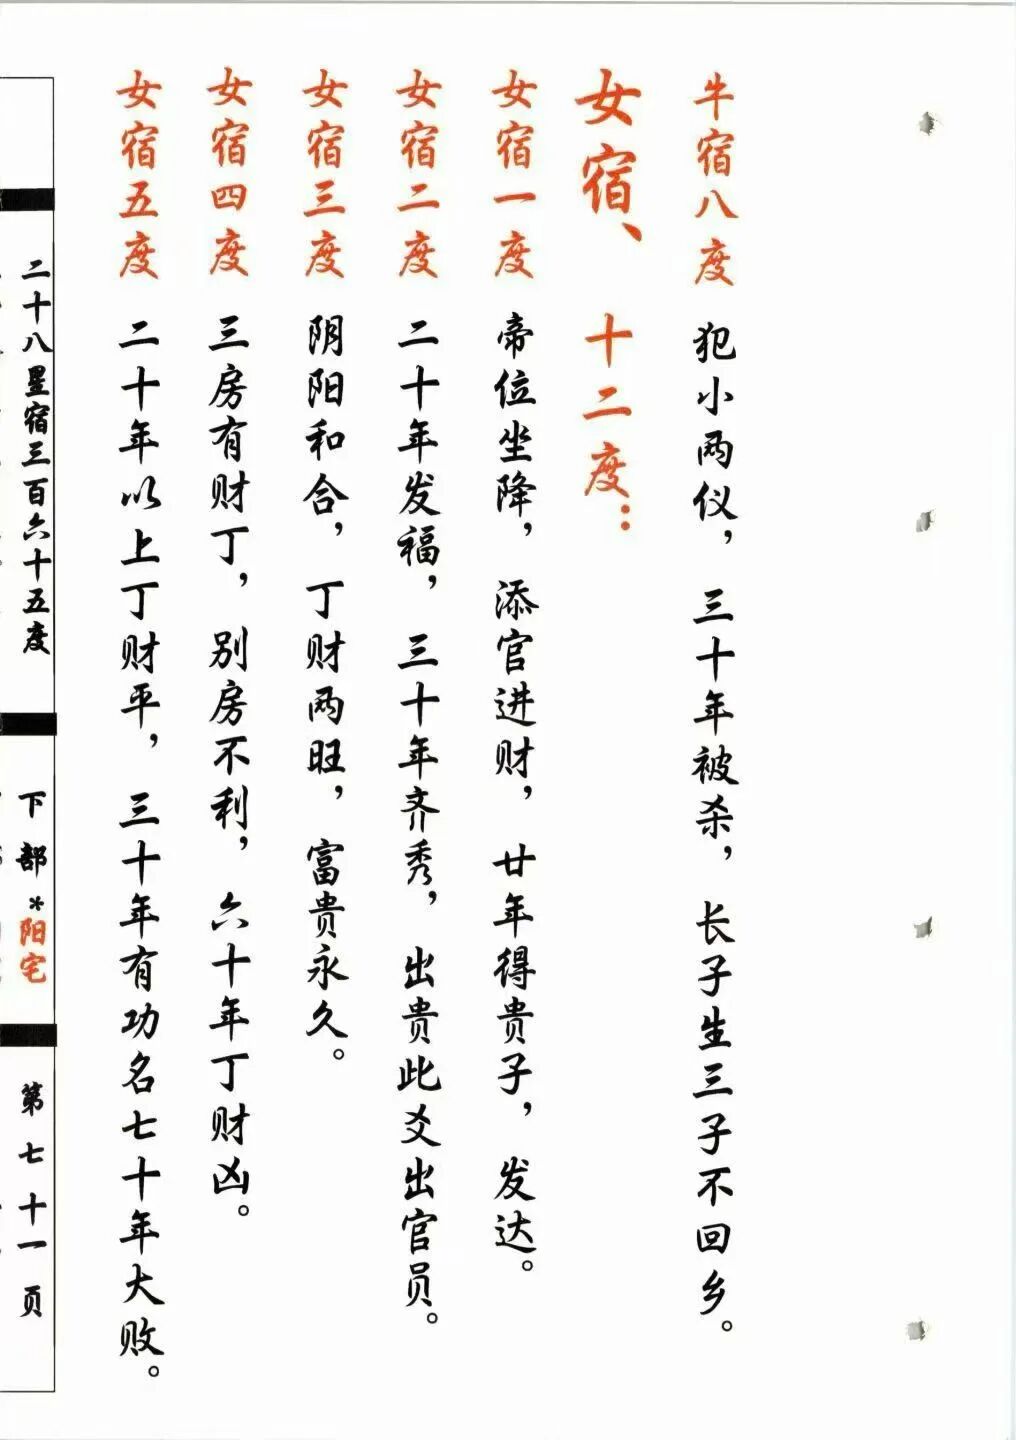 牛宿八度 犯小两仪，三十年被杀，长子生三子不回乡。
女宿、十二度：
女宿一度 帝位坐降，添官进财，廿年得贵子，发达。
女宿二度 二十年发福，三十年齐秀，出贵此爻出官员。
女宿三度 阴阳和合，丁财两旺，富贵永久。
女宿四度 三房有财丁，别房不利，六十年丁财凶。
女宿五度 二十年以上丁财平，三十年有功名七十年大败。
二十八星宿三百六十五度
下部*阳宅
第七十一页